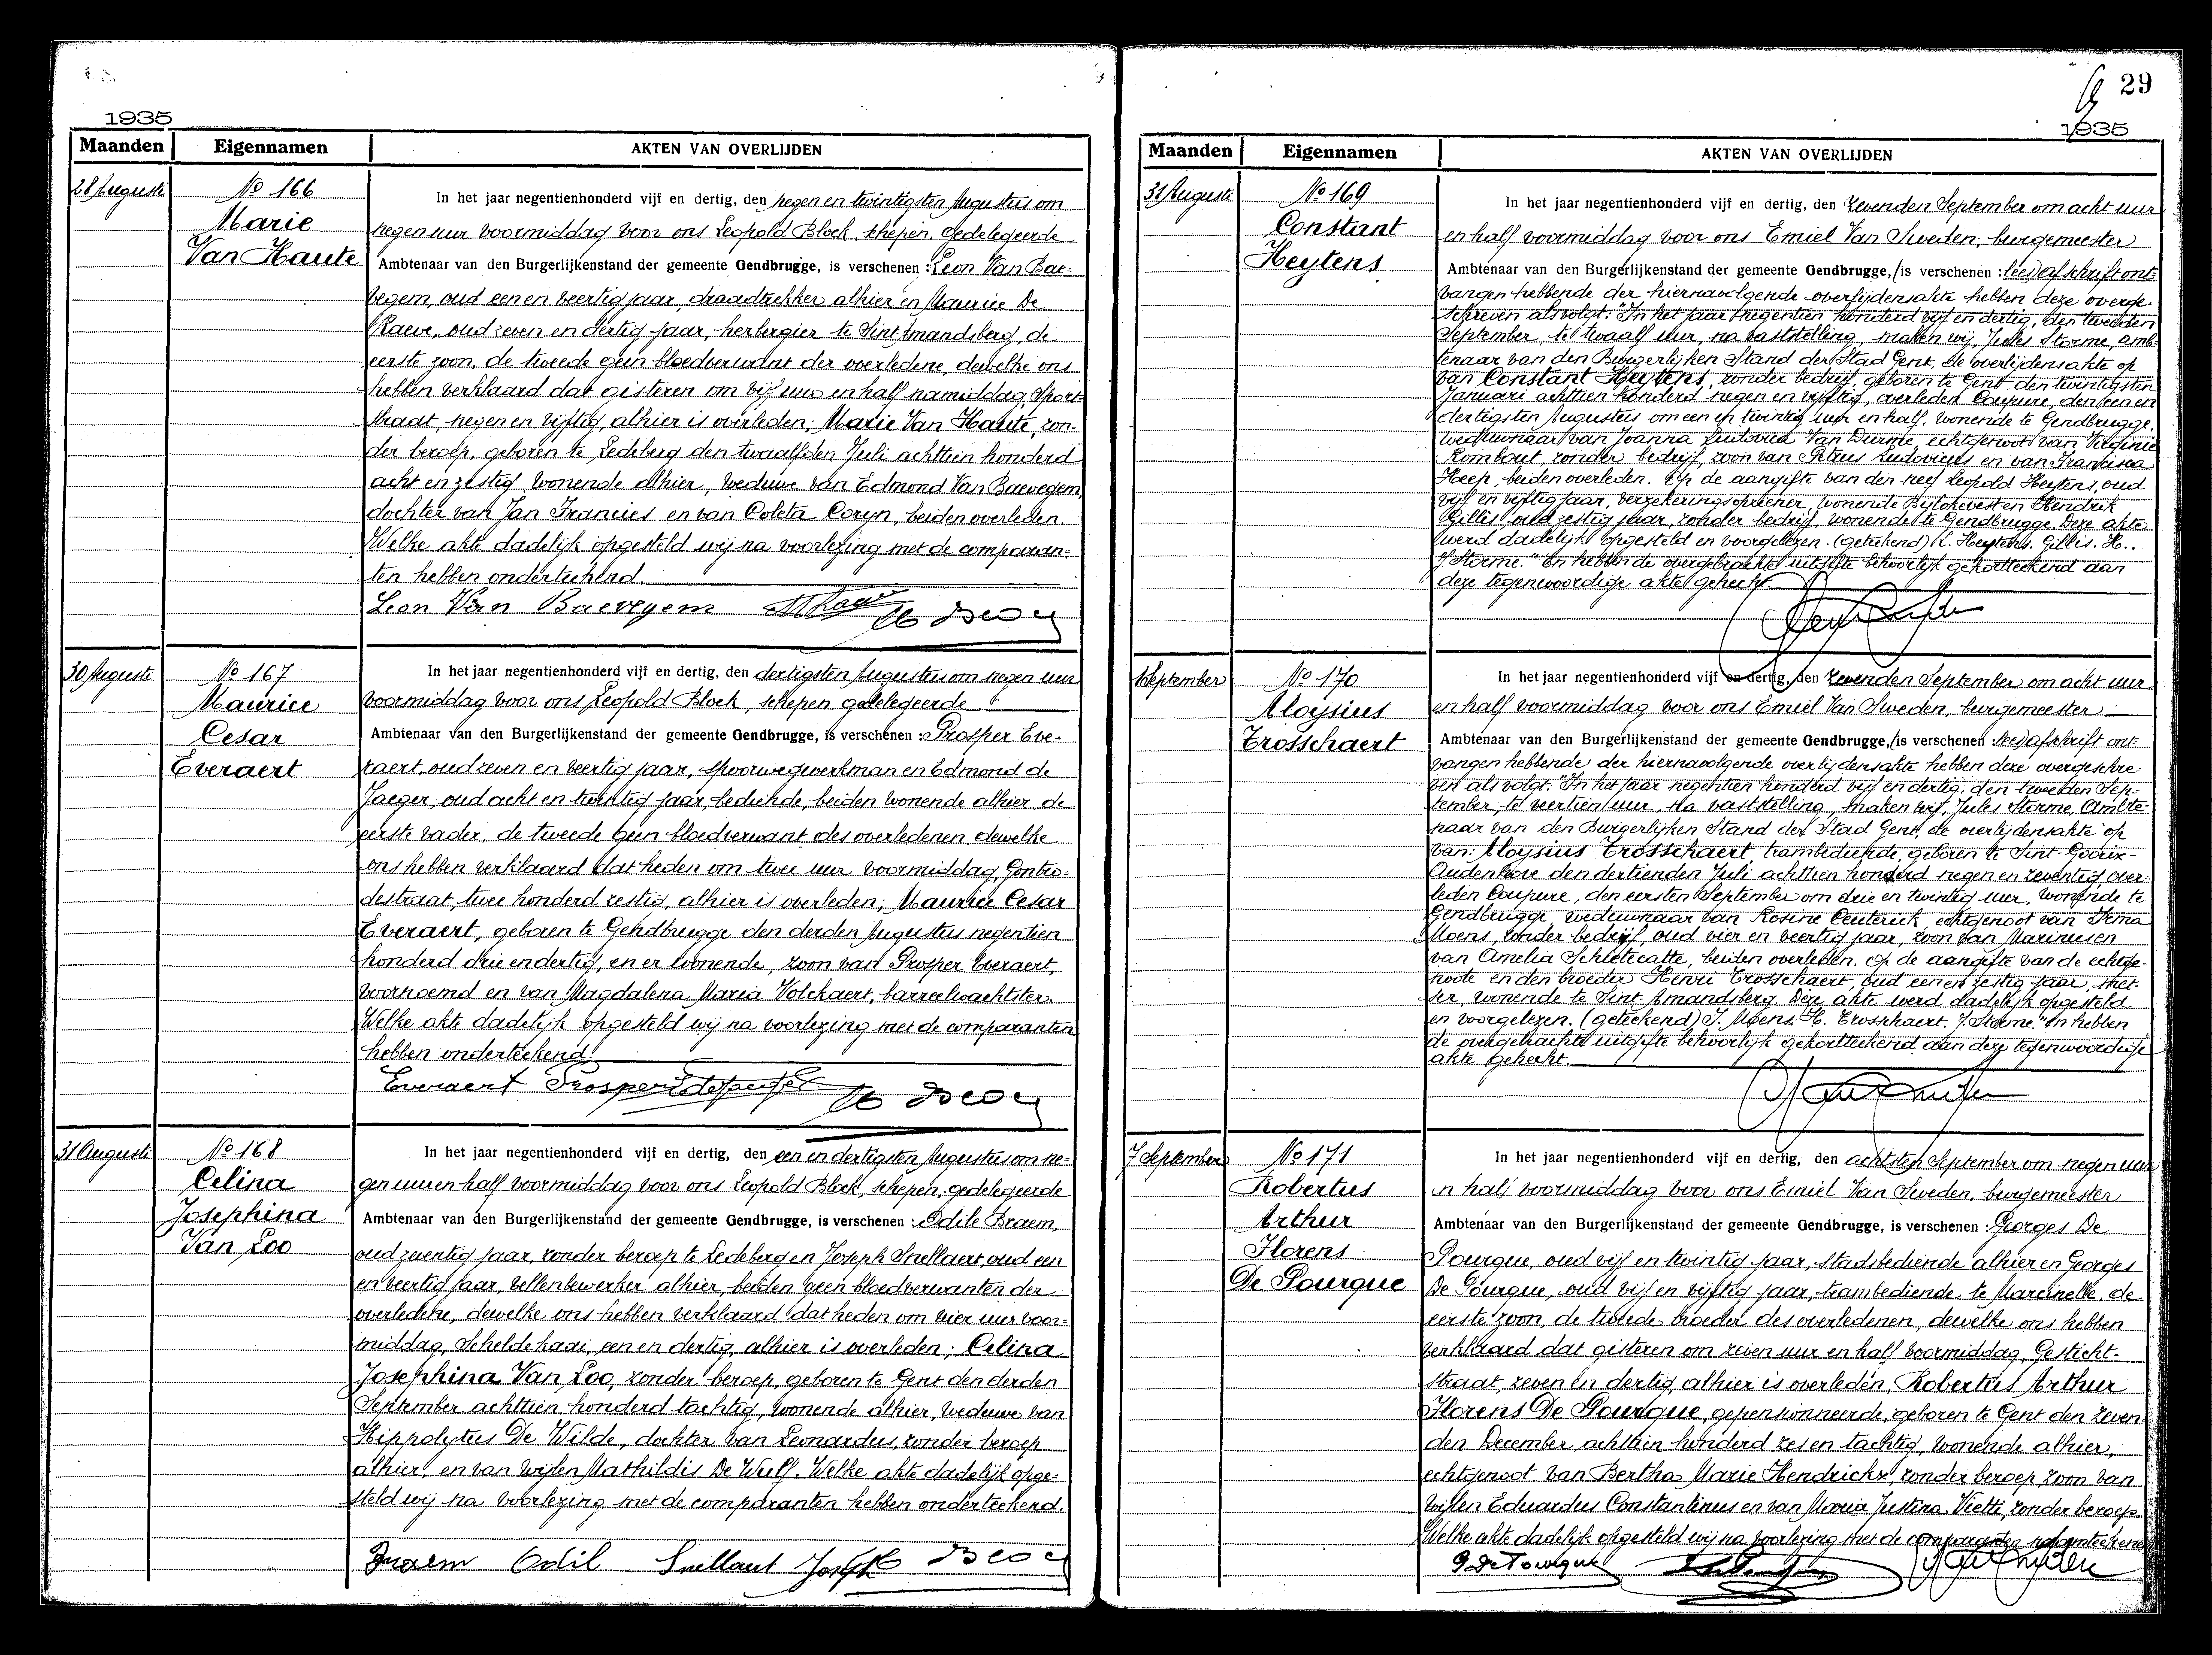 1935
Maanden Eigennamen AKTEN VAN OVERLIJDEN
28 Auguste
No 166
Marie
Van Haute
In het jaar negentienhonderd vijf en dertig, den negen en twintigsten Augustus om
negen uur voormiddag voor ons Leopold Block, schepen, gedelegeerde
Ambtenaar van den Burgerlijkenstand der gemeente Gendbrugge, is verschenen : Leon Van Bae-
vegem, oud een en veertig jaar, draadtrekker alhier en Maurice De
Raeve, oud zeven en dertig jaar, herbergier te Sint Amandsberg, de
eerste zoon, de tweede geen bloedverwant der overledene, dewelke ons
hebben verklaard dat gisteren om vijf uur en half namiddag, Sport-
straat, negen en vijftig, alhier is overleden; Marie Van Haute, zon-
der beroep, geboren te Ledeberg den twaalfden Juli achttien honderd
acht en zestig, wonende alhier, weduwe van Edmond Van Baevegem,
dochter van Jan Francies en van Coleta Coryn, beiden overleden.
Welke akte dadelijk opgesteld wij na voorlezing met de comparan-
ten hebben onderteekend.
Leon Van Baevegem
30 Auguste
No 167
Maurice
Cesar
Everaert
In het jaar negentienhonderd vijf en dertig, den dertigsten Augustus om negen uur
voormiddag voor ons Leopold Block, schepen gedelegeerde
Ambtenaar van den Burgerlijkenstand der gemeente Gendbrugge, is verschenen : Prosper Eve-
raert, oud zeven en veertig jaar, spoorwegwerkman en Edmond de
Jaeger, oud acht en twintig jaar, bediende, beiden wonende alhier, de
eerste vader, de tweede geen bloedverwant des overledenen, dewelke
ons hebben verklaard dat heden om twee uur voormiddag, Gontro-
destraat, twee honderd zestig, alhier is overleden; Maurice Cesar
Everaert, geboren te Gendbrugge den derden Augustus negentien
honderd drie en dertig, en er wonende, zoon van Prosper Everaert,
voornoemd en van Magdalena Maria Volckaert, barreelwachtster.
Welke akte dadelijk opgesteld wij na voorlezing met de comparanten
hebben onderteekend.
Everaert Prosper
31 Auguste
No 168
Celina
Josephina
Van Loo
In het jaar negentienhonderd vijf en dertig, den een en dertigsten Augustus om ne-
gen uur en half voormiddag voor ons Leopold Block, schepen, gedelegeerde
Ambtenaar van den Burgerlijkenstand der gemeente Gendbrugge, is verschenen : Odile Braem,
oud zeventig jaar, zonder beroep te Ledeberg en Joseph Snellaert, oud een
en veertig jaar, vellenbewerker alhier, beiden geen bloedverwanten der
overledene, dewelke ons hebben verklaard dat heden om vier uur voor-
middag, Scheldekaai, een en dertig, alhier is overleden; Celina
Josephina Van Loo, zonder beroep, geboren te Gent den derden
September achttien honderd tachtig, wonende alhier, weduwe van
Hippolytus De Wilde, dochter van Leonardus, zonder beroep
alhier, en van wijlen Mathildis De Wulf. Welke akte dadelijk opge-
steld wij na voorlezing met de comparanten hebben onderteekend.
Braem Odil Snellaert Joseph
29
1935
Maanden Eigennamen AKTEN VAN OVERLIJDEN
31 Auguste
No 169
Constant
Heytens
In het jaar negentienhonderd vijf en dertig, den zevenden September om acht uur
en half voormiddag voor ons Emiel Van Sweden, burgemeester
Ambtenaar van den Burgerlijkenstand der gemeente Gendbrugge, (is verschenen : lees) afschrift ont-
vangen hebbende der hiernavolgende overlijdensakte hebben deze overge-
schreven als volgt: "In het jaar negentien honderd vijf en dertig, den tweeden
September, te twaalf uur, na vaststelling, maken wij, Jules Storme, amb-
tenaar van den Burgerlijken Stand der Stad Gent, de overlijdensakte op
van Constant Heytens, zonder bedrijf, geboren te Gent den twintigsten
Januari achttien honderd negen en vijftig, overleden Coupure, den een en
dertigsten Augustus om een en twintig uur en half, wonende te Gendbrugge,
weduwnaar van Joanna Ludovica Van Durme, echtgenoot van Virginie
Rombout, zonder bedrijf, zoon van Petrus Ludovicus en van Francisca
Heep, beiden overleden. Op de aangifte van den neef Leopold Heytens, oud
vijf en vijftig jaar, verzekeringsopziener, wonende Bijlokevest en Hendrik
Gillis, oud zestig jaar, zonder bedrijf, wonende te Gendbrugge. Deze akte
werd dadelijk opgesteld en voorgelezen. (geteekend) L. Heytens. Gillis. H..
J. Storme." En hebben de overgebrachte uitgifte behoorlijk gekortteekend aan
deze tegenwoordige akte gehecht.
1 September
No 170
Aloysius
Trosschaert
In het jaar negentienhonderd vijf en dertig, den zevenden September om acht uur
en half voormiddag voor ons Emiel Van Sweden, burgemeester
Ambtenaar van den Burgerlijkenstand der gemeente Gendbrugge, (is verschenen : lees) afschrift ont-
vangen hebbende der hiernavolgende overlijdensakte hebben deze overgeschre-
ven als volgt: "In het jaar negentien honderd vijf en dertig, den tweeden Sep-
tember, te veertien uur, na vaststelling, maken wij, Jules Storme, Ambte-
naar van den Burgerlijken Stand der Stad Gent, de overlijdensakte op
van: Aloysius Trosschaert, trambediende, geboren te Sint-Goorix-
Oudenhove den dertienden Juli achttien honderd negen en zeventig, over-
leden Coupure, den eersten September om drie en twintig uur, wonende te
Gendbrugge, weduwnaar van Rosine Ceuterick, echtgenoot van Irma
Moens, zonder bedrijf, oud vier en veertig jaar, zoon van Marinus en
van Amelia Schletecatte, beiden overleden. Op de aangifte van de echtge-
noote en den broeder Henri Trosschaert, oud een en zestig jaar, smet-
ser, wonende te Sint-Amandsberg. Deze akte werd dadelijk opgesteld
en voorgelezen. (geteekend) I. Moens. H. Trosschaert. J. Storme." En hebben
de overgebrachte uitgifte behoorlijk gekortteekend aan deze tegenwoordige
akte gehecht.
7 September
No 171
Robertus
Arthur
Florens
De Pourque
In het jaar negentienhonderd vijf en dertig, den achtsten September om negen uur
en half voormiddag voor ons Emiel Van Sweden, burgemeester
Ambtenaar van den Burgerlijkenstand der gemeente Gendbrugge, is verschenen : Georges De
Pourque, oud vijf en twintig jaar, stadsbediende alhier en Georges
De Pourque, oud vijf en vijftig jaar, trambediende te Marcinelle, de
eerste zoon, de tweede broeder des overledenen, dewelke ons hebben
verklaard dat gisteren om zeven uur en half voormiddag, Gesticht-
straat, zeven en dertig, alhier is overleden, Robertus Arthur
Florens De Pourque, gepensionneerde, geboren te Gent den zeven-
den December achttien honderd zes en tachtig, wonende alhier,
echtgenoot van Bertha Marie Hendrickx, zonder beroep, zoon van
wijlen Eduardus Constantinus en van Maria Justina Vietti, zonder beroep.
Welke akte dadelijk opgesteld wij na voorlezing met de comparanten
G De Pourque